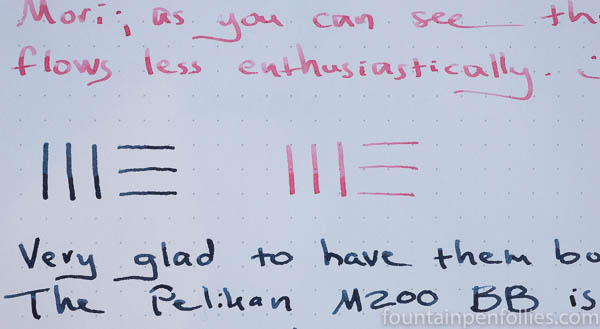 Mori; as you can see th
flows less enthusiastically.
Very glad to have them bo
The Pelikan M200 BB is
fountainpenfollies.com